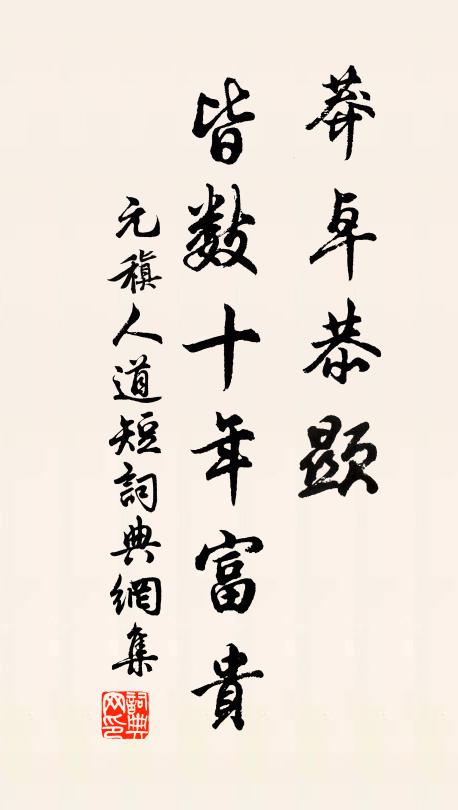 莽卓恭顯
皆數十年富貴
元稹人道短詞典網集
詞典網印